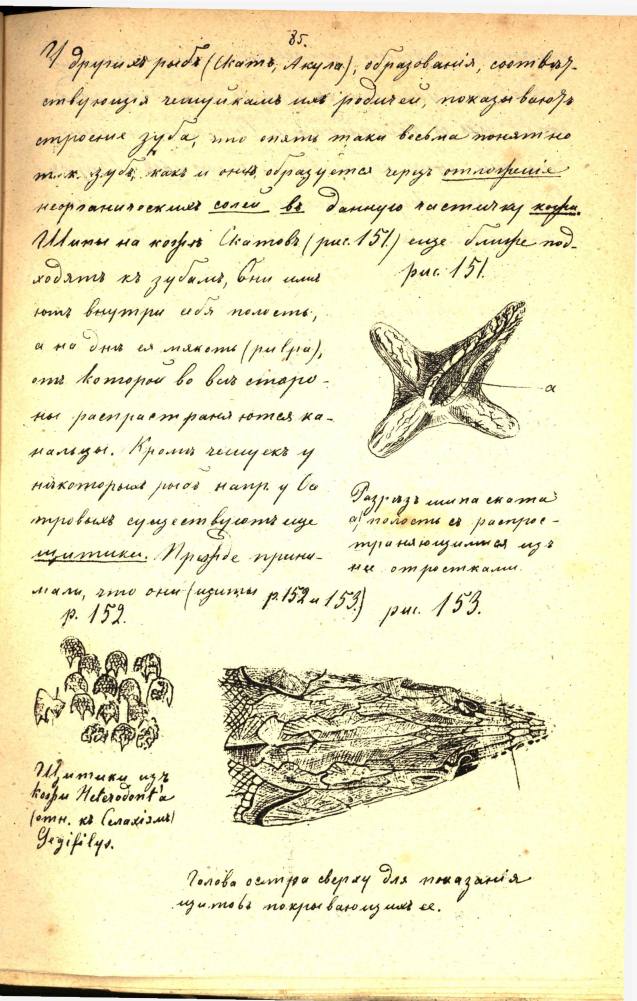 85.
У другихъ рыбъ (Скатъ, Акула), образованія, соотвѣт-
ствующія чешуйкамъ ихъ родичей, показываютъ
строеніе зуба, что опять таки весьма понятно
т.к. зубъ, какъ и они, образуется чрезъ отложеніе
неорганическихъ солей въ данную частичку кожи.
Шипы на кожѣ Скатовъ (рис. 151.) еще ближе под-
ходятъ къ зубамъ, Они имѣ-
ютъ внутри себя полость,
а на днѣ ея мякоть (pulpa),
отъ которой во всѣ сторо-
ны распрастраняются ка-
нальцы. Кромѣ чешуекъ у
нѣкоторыхъ рыбъ напр. у Ос
тровыхъ существуютъ еще
щитики. Прежде прини-
мали, что они (щиты р. 152 и 153.)
рис. 151.
а
Разрѣзъ шипа ската
а, полость съ распрос-
траняющимися изъ
нея отростками.
р. 152.
Щитики изъ
кожи Heterodont'а
(отн. къ Селахіямъ)
рис. 153.
Голова остра сверху для показанія
щитовъ покрывающихъ ее.